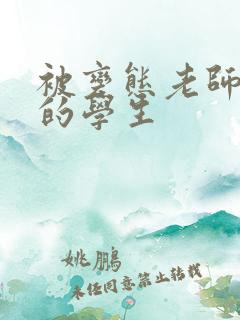 被變態老師
的學生
姚鵬
未经同意禁止转载